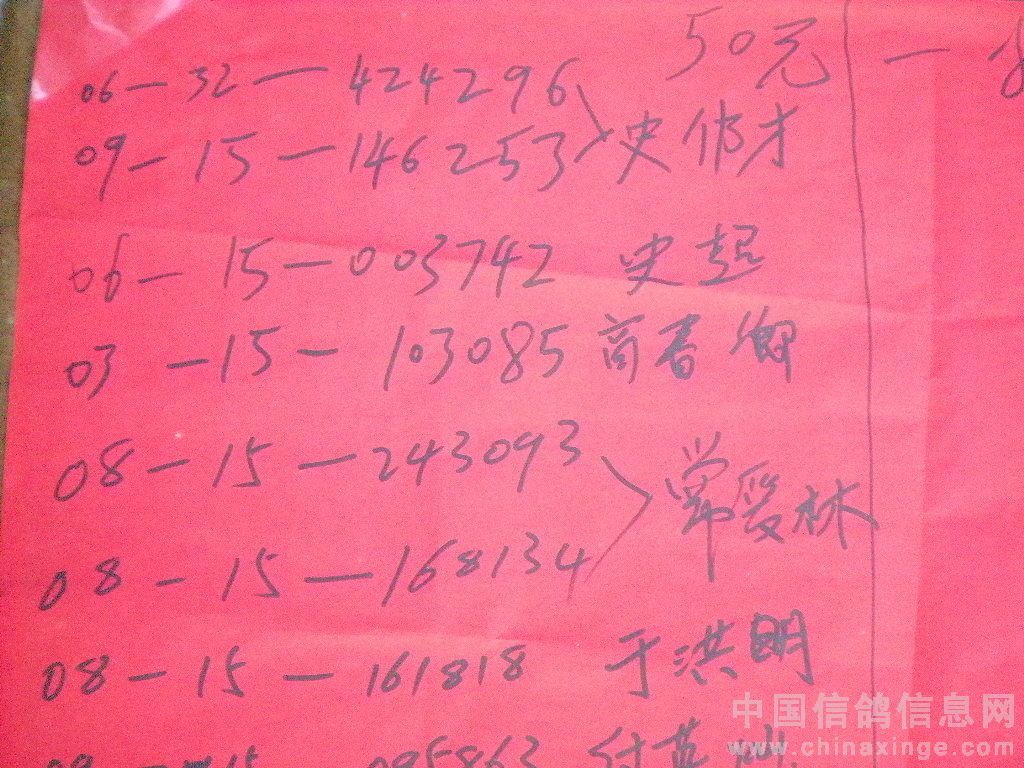 50元 一
06-32-424296
09-15-146253 史作才
06-15-003742 史超
03-15-103085 商春卿
08-15-243093
常爱林
08-15-168134
08-15-161818 于洪明
-15-095863 付英
中国信鸽信息网
www.chinaxinge.com